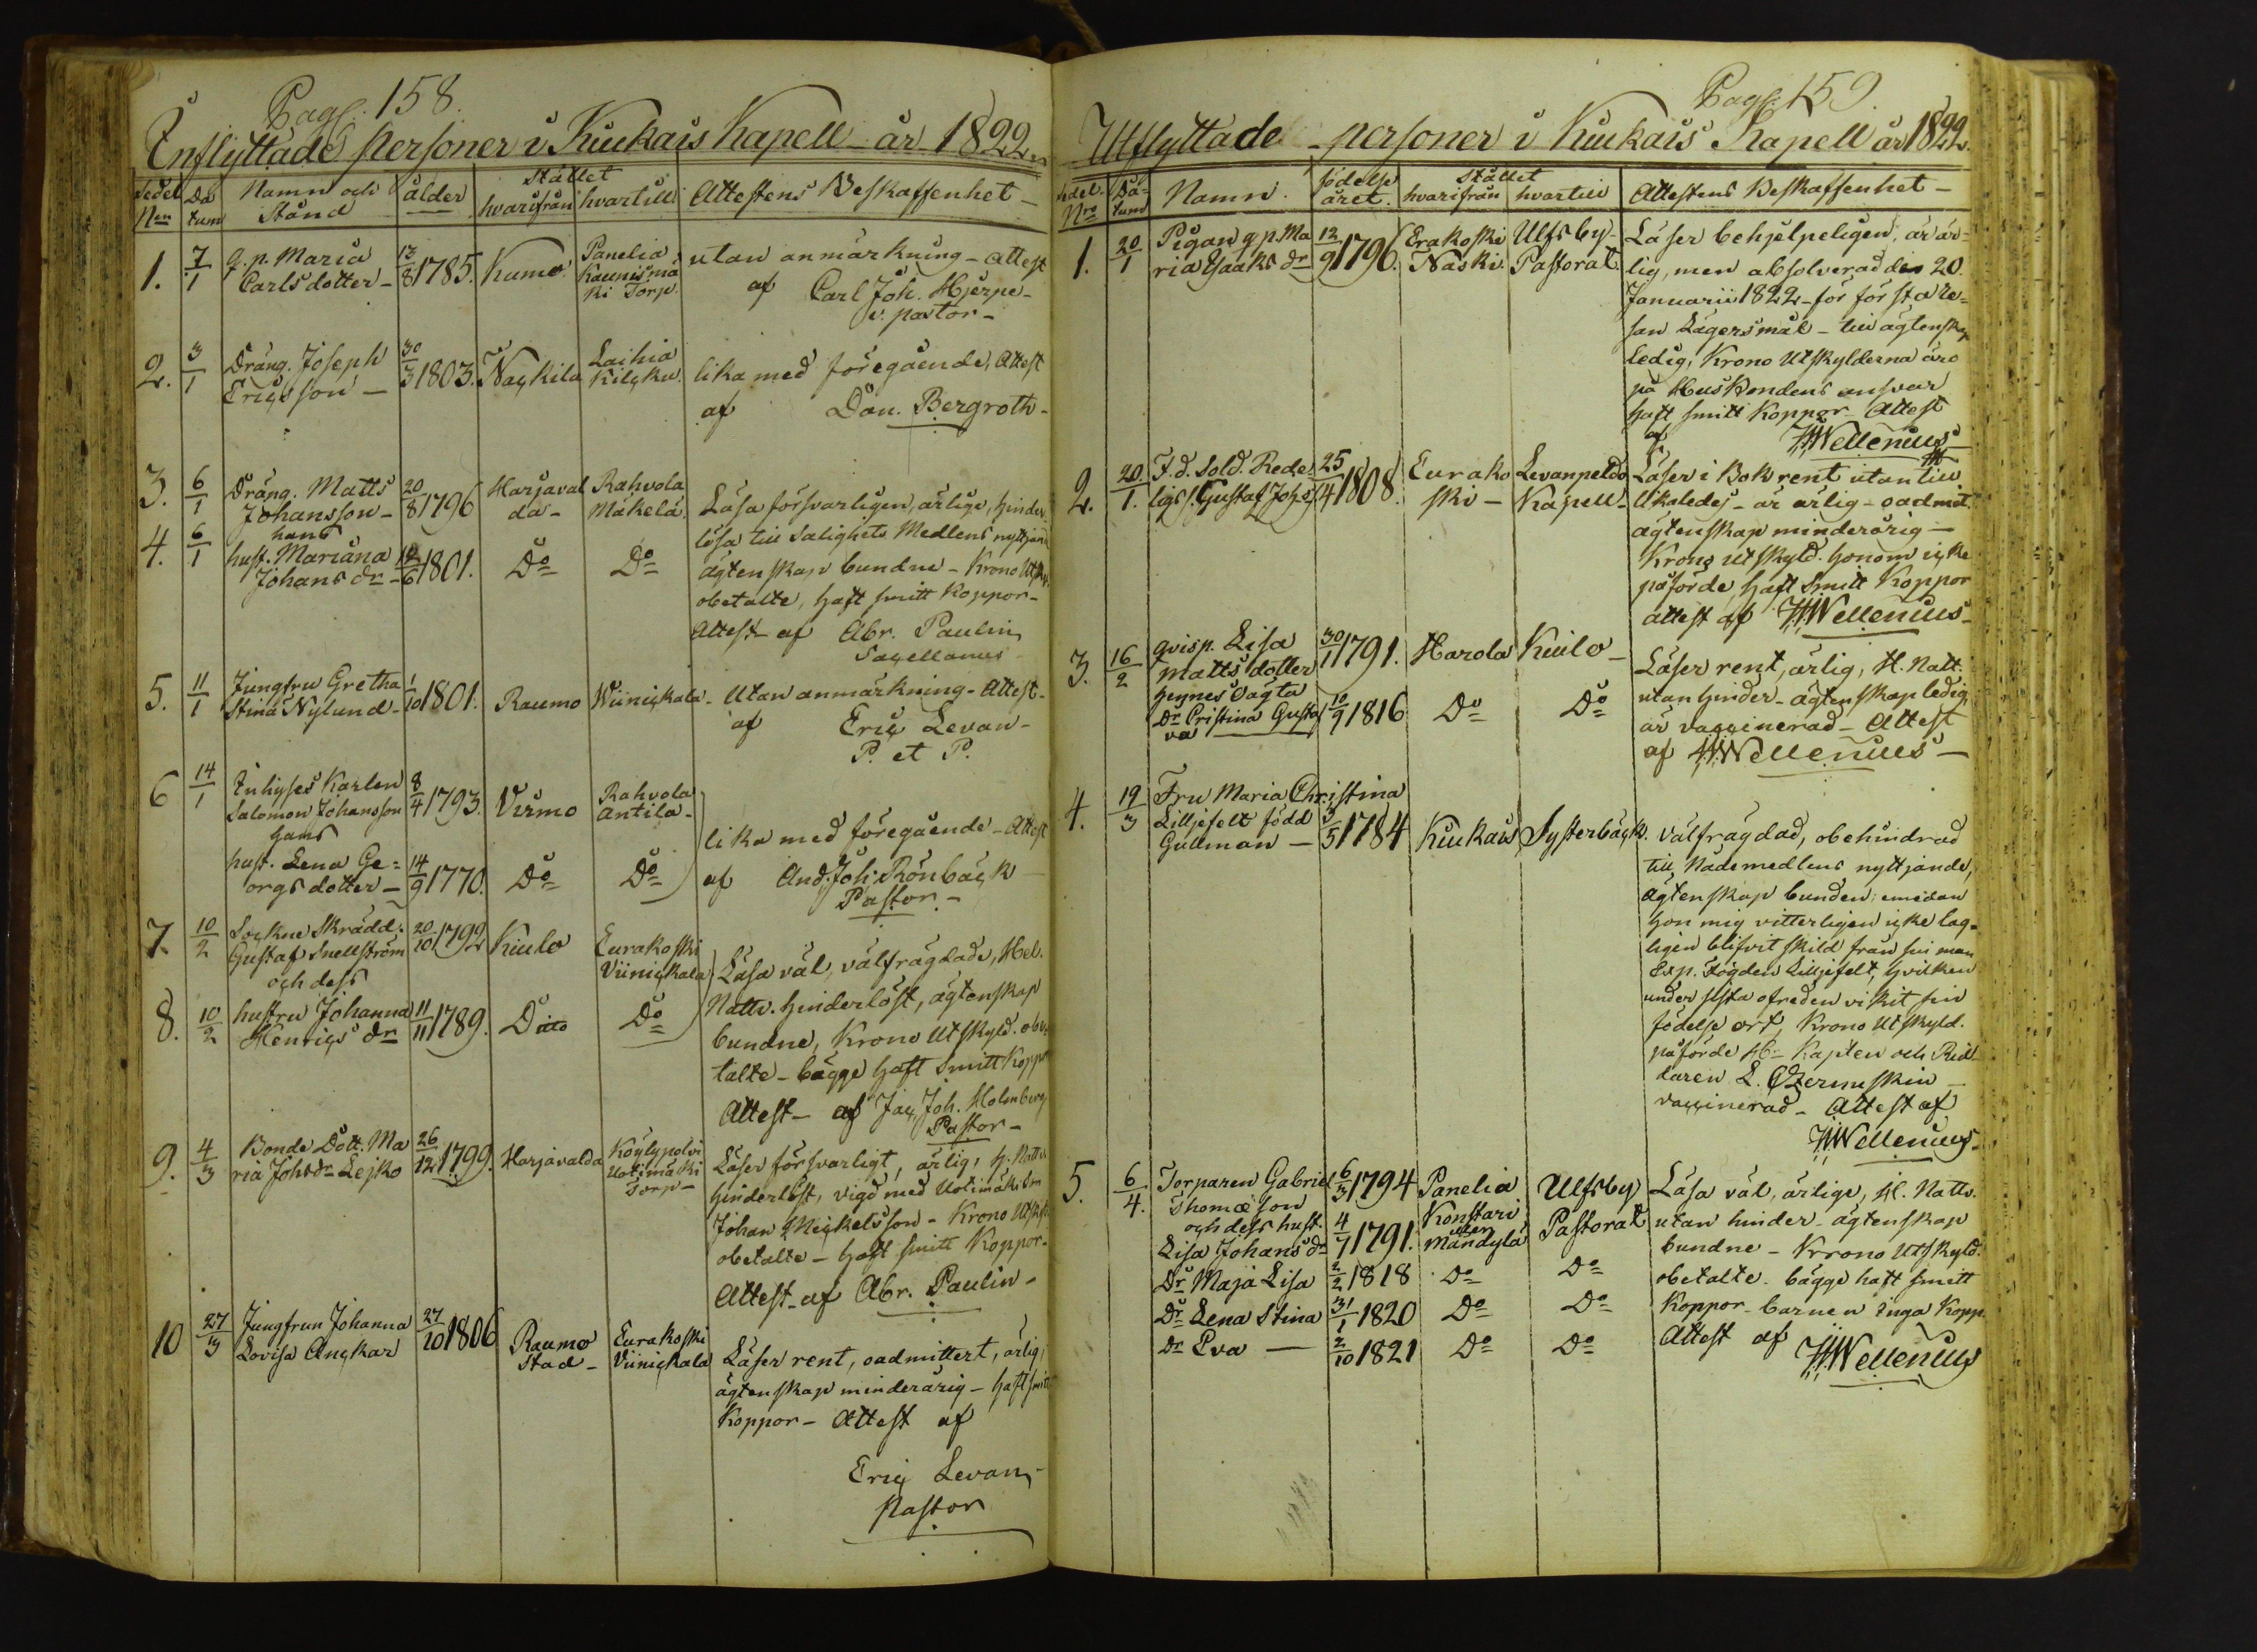 Pag: 158.
Inflyttade personer i Kiukais Kapell år 1822
Sedel Nro | Datum | Namn och Stånd | ålder | Stället hvarifrån | hvartill | Attestens Beskaffenhet
1. 7/1 q. p. Maria Carlsdotter 13/8 1785. Kumo Panelia Kaunismäki Torp. utan anmärkning - attest
af Carl Joh. Hjerpe
v. pastor
2. 3/1 Dräng. Joseph Ericsson 30/3 1803. Nackila Laihia Kilcku. lika med föregående, Attest
af Dan. Bergroth
3. 6/1 Dräng. Matts Johansson 20/8 1796 Harjavalda Rahvola Mäkelä. Läsa försvarligen, ärlige, hinder
4. 6/1 hans hust. Mariana Johans dr 1801. Do Do
lösa till Salighets Medlens nyttjande
ägtenskap bundne - Krono Utsky.
obetalte, haft smitt Koppor
Attest af Abr. Paulin
Sacellanus
5. 11/1 Jungfru Gretha Stina Nylund 1/10 1801. Raumo Wiinickala Utan anmärkning - Attest
af Eric Levan
P. et P.
6 14/1 Inhyses Karlen Salomon Johansson 8/4 1793. Virmo Rahvola Antila
hans hust. Lena Georgsdotter 14/9 1770. Do Do
lika med föregående - Attest
af And. Joh. Rönbäck
Pastor
7. 10/2 Sockne Skrädd. Gustaf Snellström 20/10 1792 Kiulo Eurakoski Viinickala
och dess
8. 10/2 hustru Johanna Henrics dr 11/11 1789. Ditto Do
Läsa väl, välfrägdade, Hel.
Nattv. hinderlöst, ägtenskap
bundne, Krono Utskyld. obe
talte - bägge haft smitt Koppor
Attest - af Jac. Joh. Holmberg
Pastor
9. 4/3 Bonde Dott. Maria Johsdr Lejko 26/12 1799. Harjavalda Köylypolvi Uotimäki Torp
Läser försvarligt, ärlig, h. Nattv
hinderlöst, vigd med Uotimäki Sm
Johan Mickelsson - Krono Utsk.
obetalte - haft smitt Koppor
Attest af Abr. Paulin
10 27/3 Jungfrun Johanna Lovisa Anckar 27/10 1806 Raumo Stad Eurakoski Viinickala
Läser rent, oadmittert, ärlig,
ägtenskap minderårig - haft smitt
Koppor - Attest af
Eric Levan
Pastor
Pag: 159.
Utflyttade personer i Kiukais Kapell år 1822.
Sedel Nro | Datum | Namn. | födelse året. | Stället hvarifrån | hvartill | Attestens Beskaffenhet
1. 20/1 Pigan q. p. Maria Isaaks dr 12/9 1796. Erakoski Naski Ulfsby Pastorat.
Läser behjelpeligen, är är-
lig, men absolverad den 20.
Januarii 1822 för första re-
san Lägersmål - till ägtenskap
ledig, Krono Utskylderna äro
på Husbondens ansvar
haft smitt Koppor - Attest
af HWellenius
2. 20/1. F. d. Sold. Redeligs s. Gustaf Johs 25/4 1808. Eurakoski Levanpeldo Kapell
Läser i Bok rent utantill
likaledes - är ärlig - oadmit.
ägtenskap minderårig
Krono utskyld. honom icke
påförde, haft Smitt Koppor
attest af HWellenius
3. 16/2 qvisp. Lisa Mattsdotter 30/11 1791. Harola Kiulo
hennes oägta Dr Cristina Gustava 10/9 1816 Do Do
Läser rent, ärlig, H. Natt.
utan hinder - ägtenskap ledig,
är vaccinerad - Attest
af HWellenius
4. 19/3 Fru Maria Christina Lilljefelt född Gullman 3/5 1784 Kiukais Systerbäck.
välfrägdad, obehindrad
till Nademedlens nyttjande,
ägtenskap bunden: emedan
hon mig vitterligen icke lag-
ligen blifvit skild från sin man
Exp. Fogden Lilljefelt, hvilken
under sista ofreden vikit sin
födelse ort, Krono Utskyld.
påförde Hr Kapten och Rid-
daren L. Czermuskin
vaccinerad - Attest af
HWellenius
5. 6/4. Torparen Gabriel Thomæson 6/3 1794 Panelia Konstari Ulfsby Pastorat
och dess hust. Lisa Johans dr 4/7 1791. Mändylä
Dr Maja Lisa 2/2 1818 Do Do
Dr Lena Stina 31/1 1820 Do Do
Dr Eva 2/10 1821 Do Do
Läsa väl, ärlige, H. Nattv.
utan hinder - ägtenskap
bundne - Krono Utskyld.
obetalte. bägge haft smitt
Koppor - barnen inga Kopp.
Attest af HWellenius